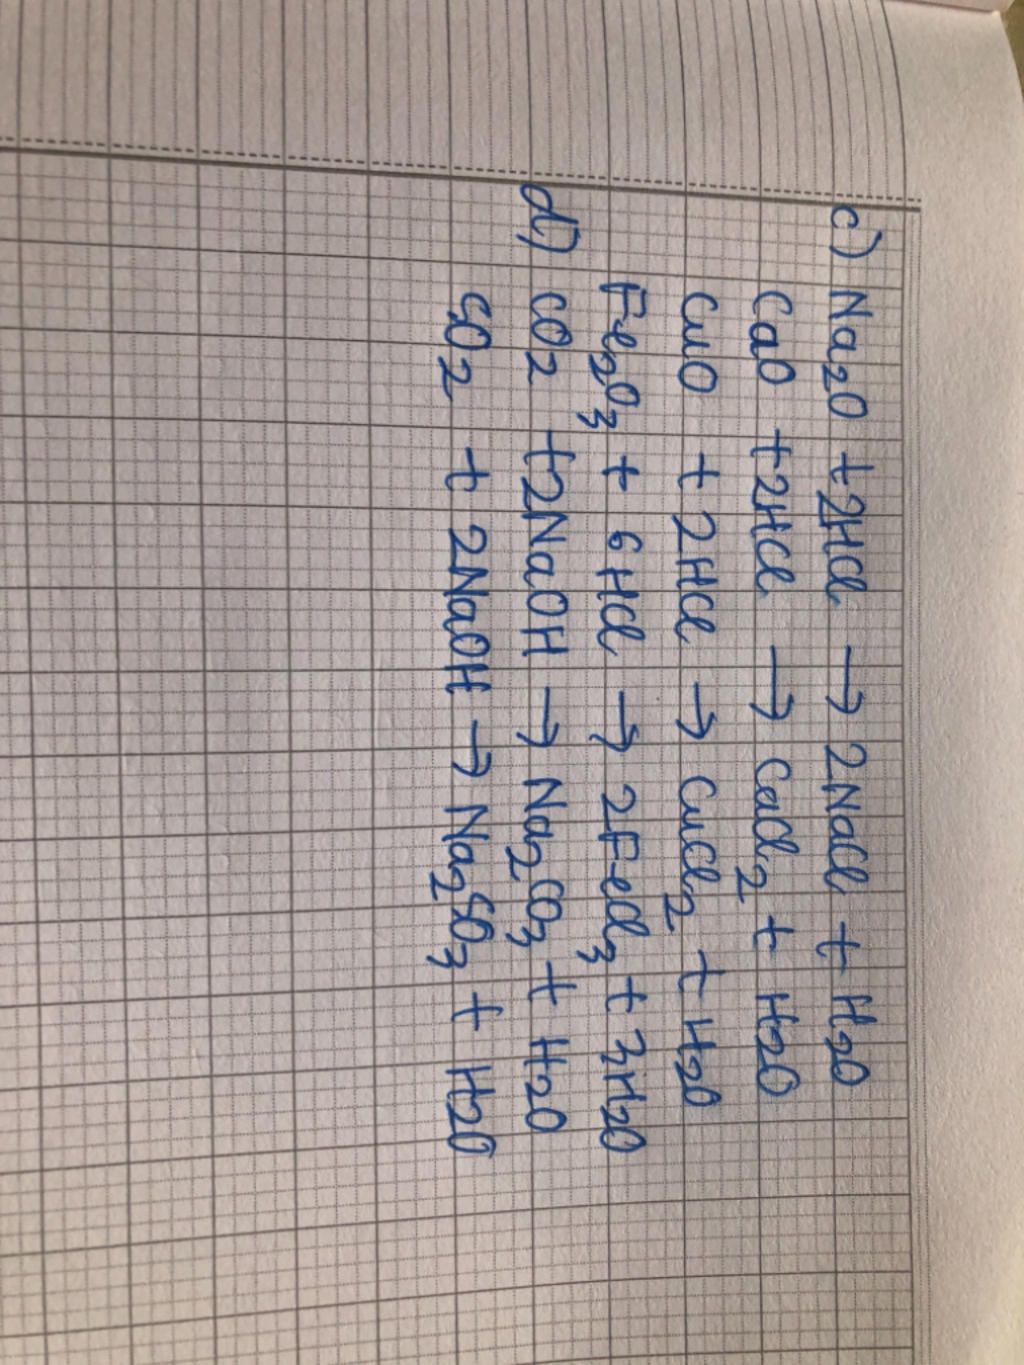 c) Na2O + 2HCl → 2NaCl + H2O
CaO + 2HCl → CaCl2 + H2O
CuO + 2HCl → CuCl2 + H2O
Fe2O3 + 6HCl → 2FeCl3 + 3H2O
d) CO2 + 2NaOH → Na2CO3 + H2O
SO2 + 2NaOH → Na2SO3 + H2O